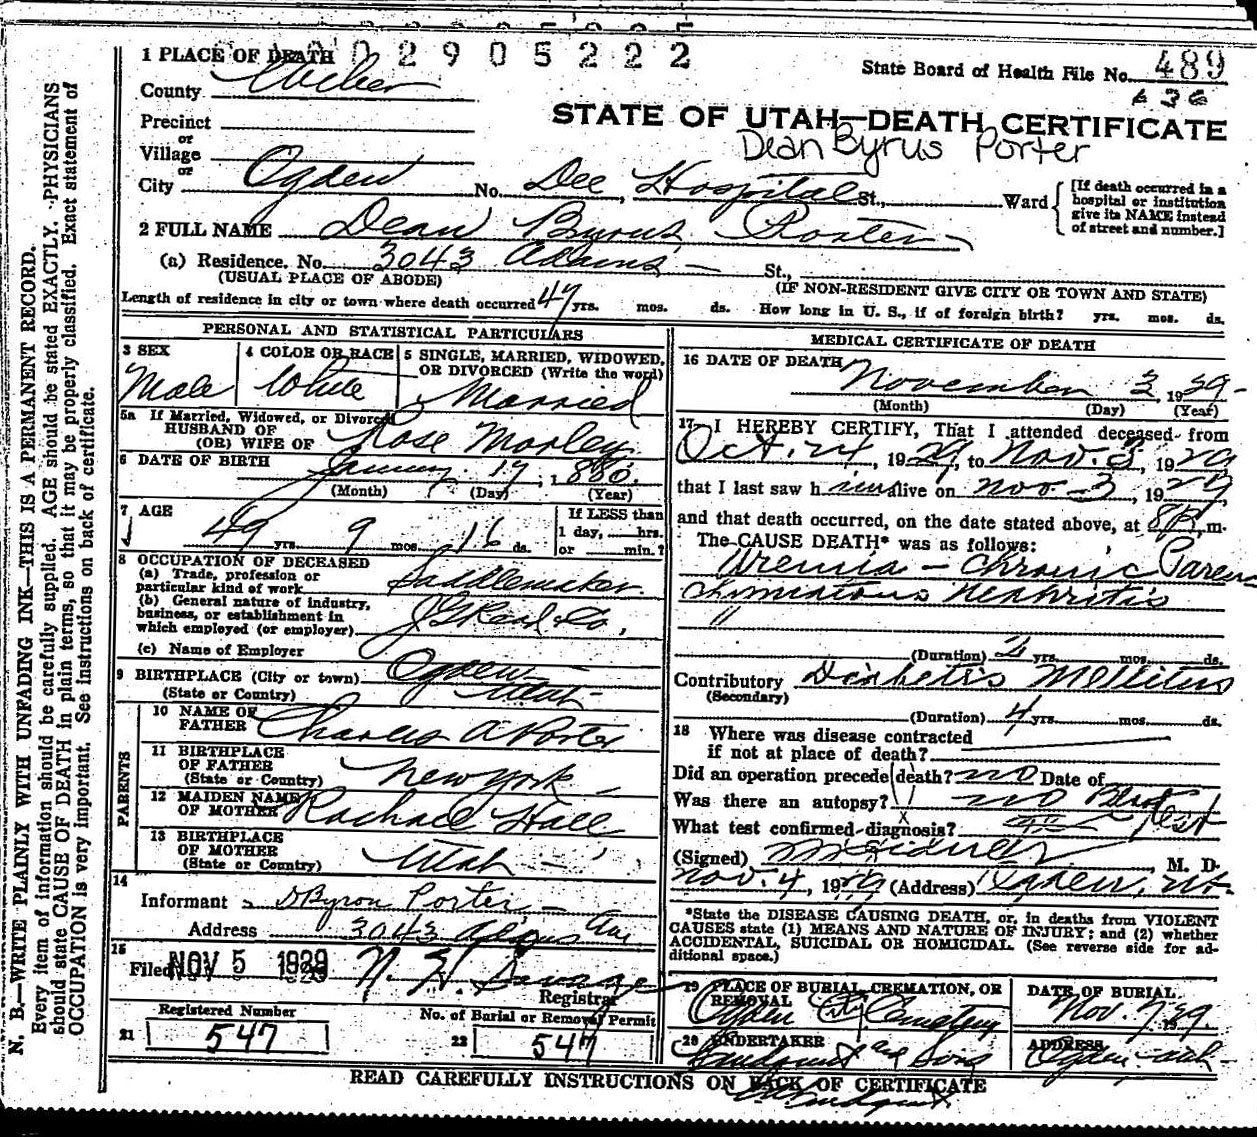 2 9 0 5 2 2 2
1 PLACE OF DEATH
State Board of Health File No. 489
636
County Weber
STATE OF UTAH—DEATH CERTIFICATE
Precinct
Dean Byrus Porter
or
Village
or
City Ogden No. Dee Hospital St., Ward
[If death occurred in a hospital or institution give its NAME instead of street and number.]
2 FULL NAME Dean Byrus Porter
(a) Residence. No. 3043 Adams St.,
(USUAL PLACE OF ABODE)
(IF NON-RESIDENT GIVE CITY OR TOWN AND STATE)
Length of residence in city or town where death occurred 47 yrs. mos. ds. How long in U. S., if of foreign birth? yrs. mos. ds.
PERSONAL AND STATISTICAL PARTICULARS
3 SEX
Male
4 COLOR OR RACE
White
5 SINGLE, MARRIED, WIDOWED,
OR DIVORCED (Write the word)
Married
5a If Married, Widowed, or Divorced
HUSBAND OF
(OR) WIFE OF Rose Morley
6 DATE OF BIRTH January 17, 1880.
(Month) (Day) (Year)
7 AGE
49 yrs. 9 mos. 16 ds.
If LESS than
1 day, hrs.
or min.?
8 OCCUPATION OF DECEASED
(a) Trade, profession or
particular kind of work Saddlemaker
(b) General nature of industry,
business, or establishment in
which employed (or employer) J G Read Co.
(c) Name of Employer
9 BIRTHPLACE (City or town) Ogden
(State or Country) Utah
PARENTS
10 NAME OF
FATHER Charles A Porter
11 BIRTHPLACE
OF FATHER
(State or Country) New York
12 MAIDEN NAME
OF MOTHER Rachael Hall
13 BIRTHPLACE
OF MOTHER
(State or Country) Utah
14
Informant D Byron Porter
Address 3043 Ave
15
Filed NOV 5 1929 Savage
Registrar
Registered Number
21 547
No. of Burial or Removal Permit
22 547
MEDICAL CERTIFICATE OF DEATH
16 DATE OF DEATH
November 3, 1929
(Month) (Day) (Year)
17 I HEREBY CERTIFY, That I attended deceased from
Oct. 24, 1929, to Nov. 3, 1929
that I last saw him alive on Nov 3, 1929
and that death occurred, on the date stated above, at 8 P. m.
The CAUSE DEATH* was as follows:
Uremia - Chronic Paren
chymatous Nephritis
"
(Duration) 2 yrs. mos. ds.
Contributory Diabetis Mellitus
(Secondary)
(Duration) 4 yrs. mos. ds.
18 Where was disease contracted
if not at place of death?
Did an operation precede death? no Date of
Was there an autopsy? no Blood
What test confirmed diagnosis? test
(Signed) , M. D.
Nov. 4, 1929 (Address) Ogden, Ut.
*State the DISEASE CAUSING DEATH, or, in deaths from VIOLENT
CAUSES state (1) MEANS AND NATURE OF INJURY; and (2) whether
ACCIDENTAL, SUICIDAL OR HOMICIDAL. (See reverse side for ad-
ditional space.)
19 PLACE OF BURIAL, CREMATION, OR
REMOVAL
Ogden City Cemetery
DATE OF BURIAL
Nov. 7, 1929.
20 UNDERTAKER
Lindquist and Sons
ADDRESS
Ogden Utah
READ CAREFULLY INSTRUCTIONS ON BACK OF CERTIFICATE
Lindquist
N. B.—WRITE PLAINLY WITH UNFADING INK—THIS IS A PERMANENT RECORD.
Every item of information should be carefully supplied. AGE should be stated EXACTLY. PHYSICIANS
should state CAUSE OF DEATH in plain terms, so that it may be properly classified. Exact statement of
OCCUPATION is very important. See instructions on back of certificate.